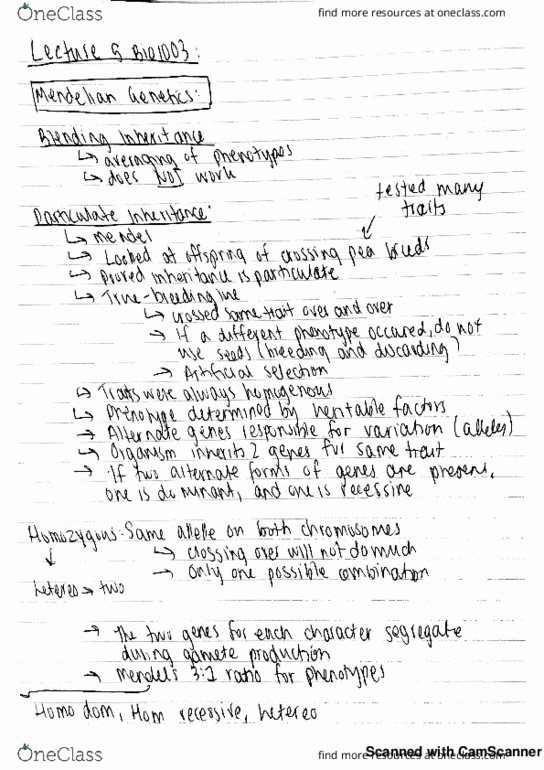 OneClass
find more resources at oneclass.com
Lecture 5 BIO1003:
Mendelian Genetics:
Blending Inheritance
↳ averaging of phenotypes
↳ does NOT work
tested many
traits
Particulate Inheritance:
↳ Mendel
↳ Looked at offspring of crossing pea breeds
↳ Proved inheritance is particulate
↳ True-breeding line
↳ crossed same trait over and over
→ If a different phenotype occured, do not
use seeds (breeding and discarding)
→ Artificial selection
→ Traits were always homogenous
↳ Phenotype determined by heritable factors
→ Alternate genes responsible for variation (alleles)
↳ Organism inherits 2 genes for same trait
→ If two alternate forms of genes are present,
one is dominant, and one is recessive
Homozygous: Same allele on both chromosomes
↳ crossing over will not do much
→ Only one possible combination
hetereo → two
→ The two genes for each character segregate
during gamete production
→ Mendel's 3:1 ratio for phenotypes
Homo dom, Hom recessive, hetereo
OneClass
find more resources at oneclass.com
Scanned with CamScanner